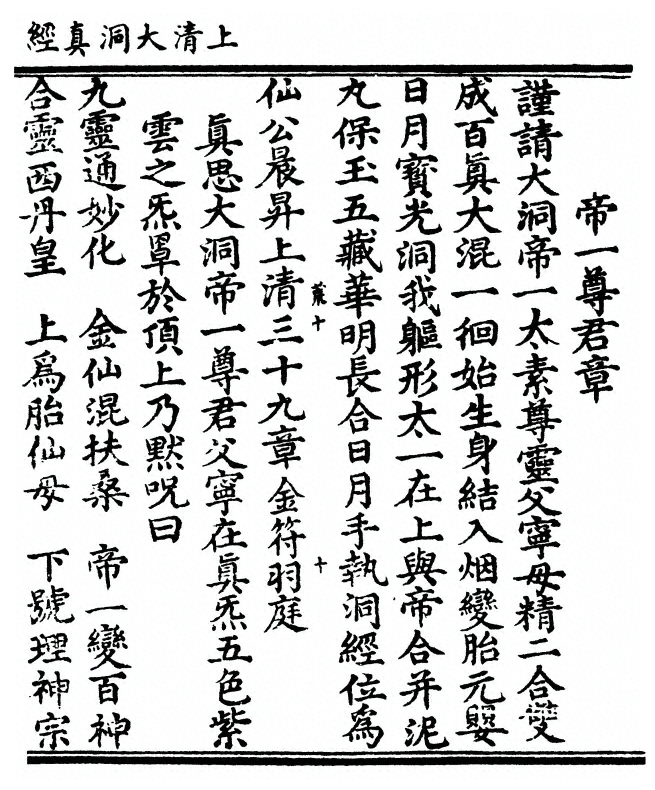 上清大洞真經
帝一尊君章
謹請大洞帝一太素尊靈父寧母精二合變
成百真大混一徊始生身結入烟變胎元嬰
日月寶光洞我軀形太一在上與帝合并泥
丸保玉五藏華明長合日月手執洞經位爲
仙公晨昇上清三十九章金符羽庭
真思大洞帝一尊君父寧在真炁五色紫
雲之炁罩於頂上乃默呪曰
九靈通妙化　金仙混扶桑　帝一變百神
合靈西丹皇　上爲胎仙母　下號理神宗
十
十